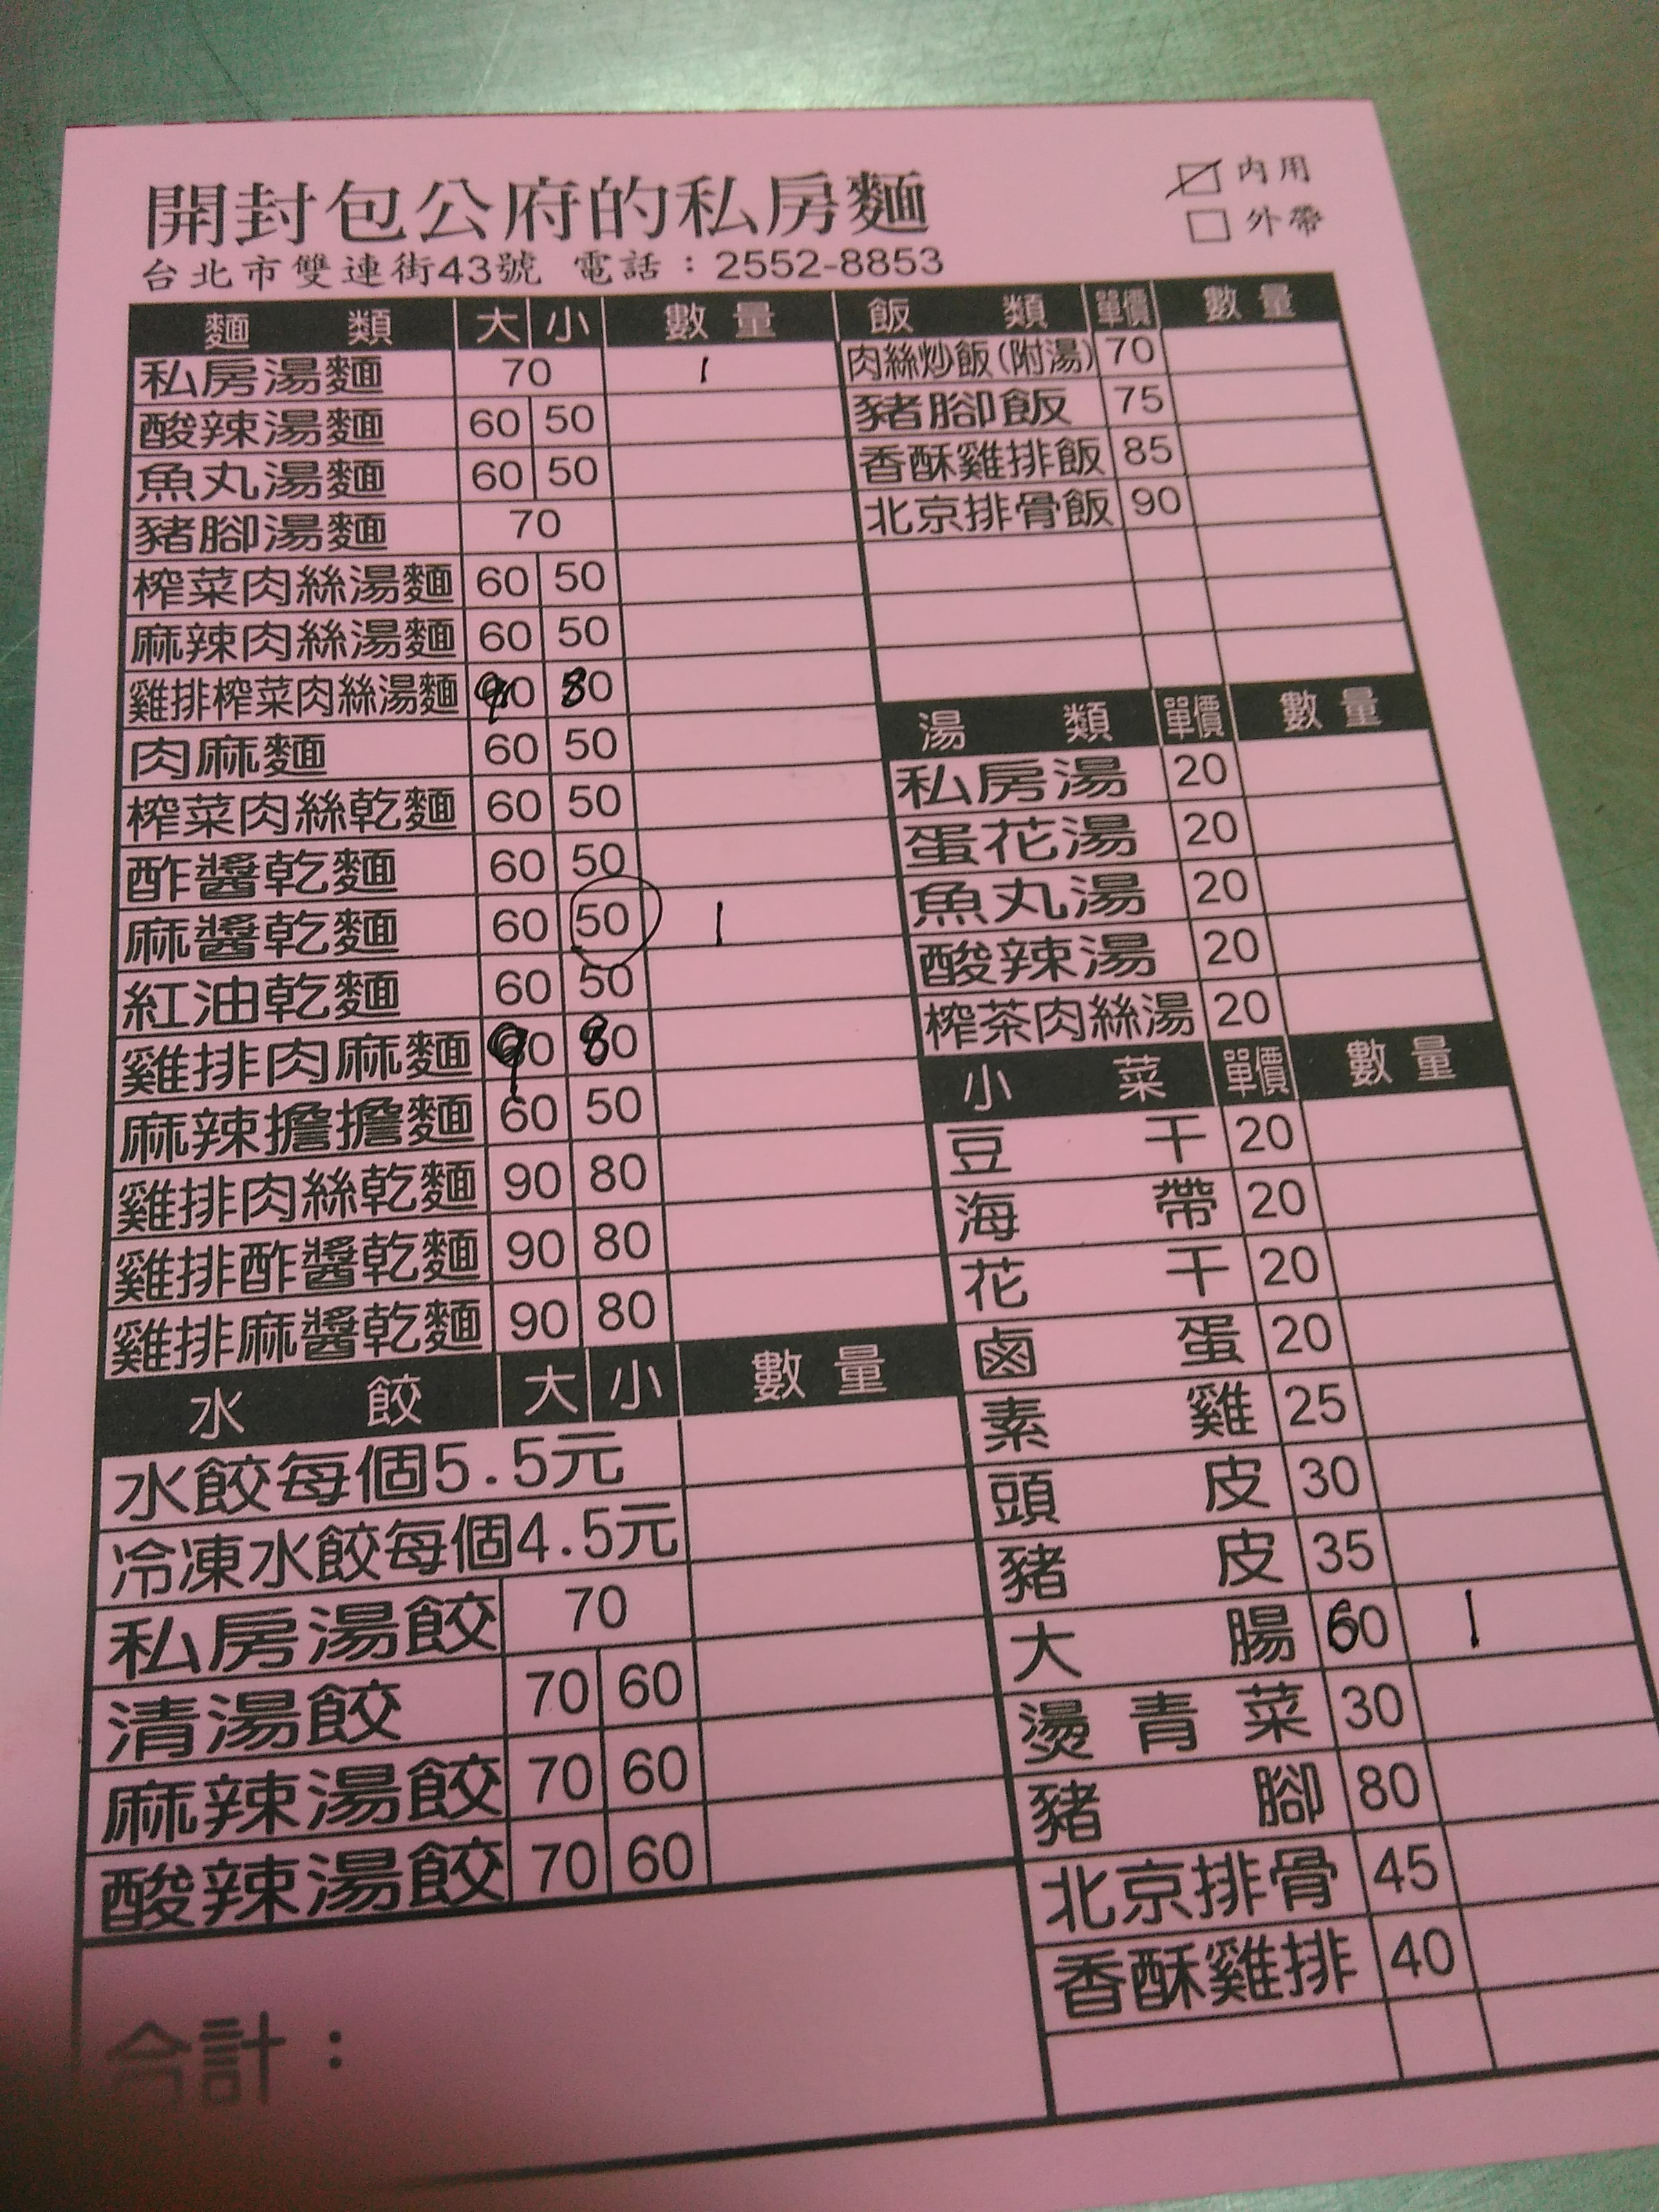 開封包公府的私房麵
內用
外帶
台北市雙連街43號 電話：2552-8853
麵類 大 小 數量
私房湯麵 70 1
酸辣湯麵 60 50
魚丸湯麵 60 50
豬腳湯麵 70
榨菜肉絲湯麵 60 50
麻辣肉絲湯麵 60 50
雞排榨菜肉絲湯麵 90 80
肉麻麵 60 50
榨菜肉絲乾麵 60 50
酢醬乾麵 60 50
麻醬乾麵 60 50 1
紅油乾麵 60 50
雞排肉麻麵 90 80
麻辣擔擔麵 60 50
雞排肉絲乾麵 90 80
雞排酢醬乾麵 90 80
雞排麻醬乾麵 90 80
水餃 大 小 數量
水餃每個5.5元
冷凍水餃每個4.5元
私房湯餃 70
清湯餃 70 60
麻辣湯餃 70 60
酸辣湯餃 70 60
合計：
飯類 單價 數量
肉絲炒飯(附湯) 70
豬腳飯 75
香酥雞排飯 85
北京排骨飯 90
湯類 單價 數量
私房湯 20
蛋花湯 20
魚丸湯 20
酸辣湯 20
榨茶肉絲湯 20
小菜 單價 數量
豆干 20
海帶 20
花干 20
鹵蛋 20
素雞 25
頭皮 30
豬皮 35
大腸 60 1
燙青菜 30
豬腳 80
北京排骨 45
香酥雞排 40